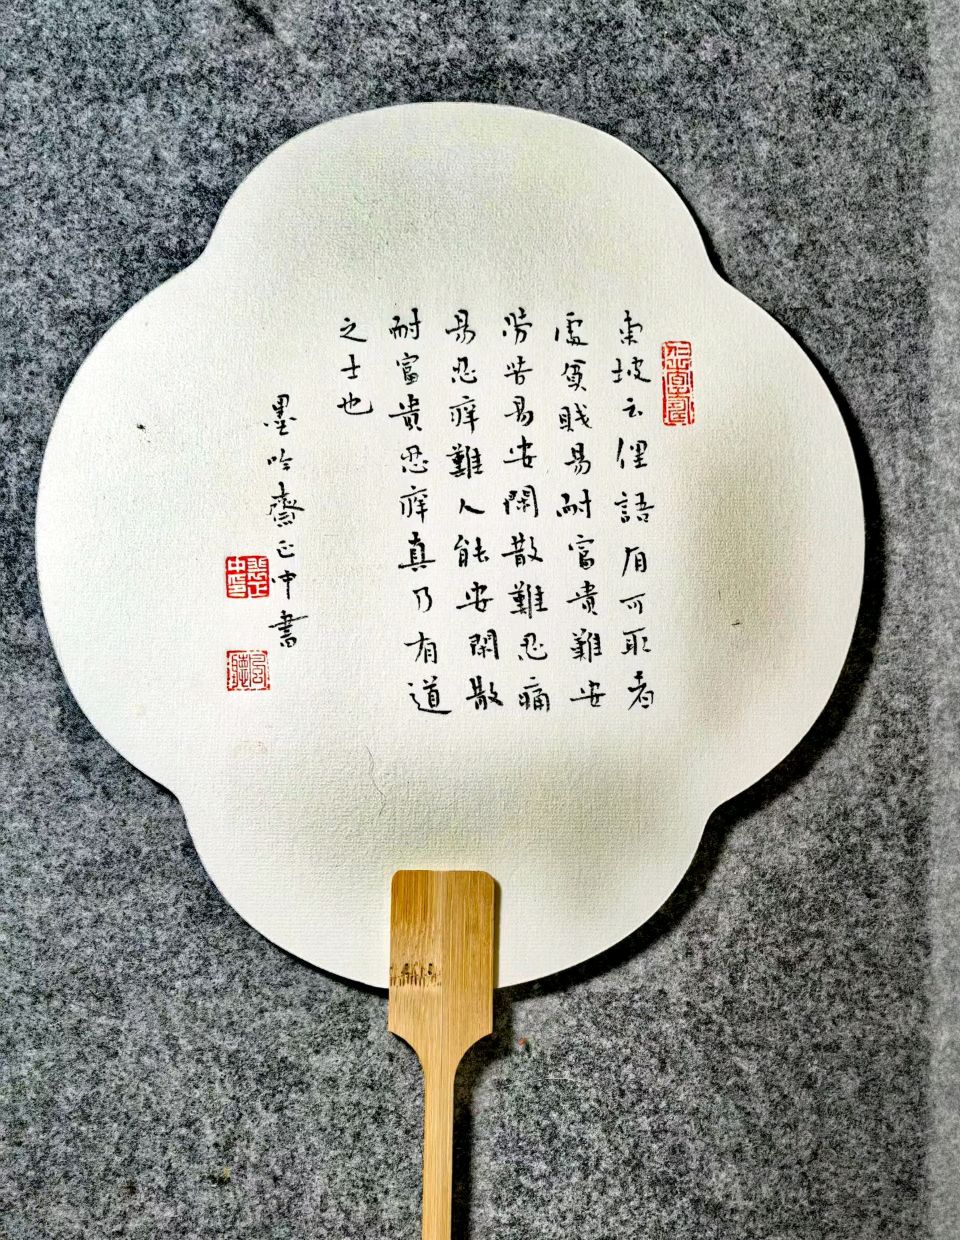 東坡云俚語有可取者
處貧賤易耐富貴難安
勞苦易安閑散難忍痛
易忍痒難人能安閑散
耐富貴忍痒真乃有道
之士也
墨吟齋正中書